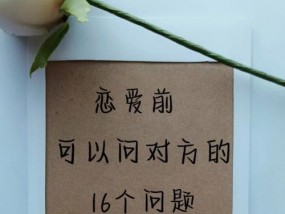 恋爱前
可以问对方的
16个问题